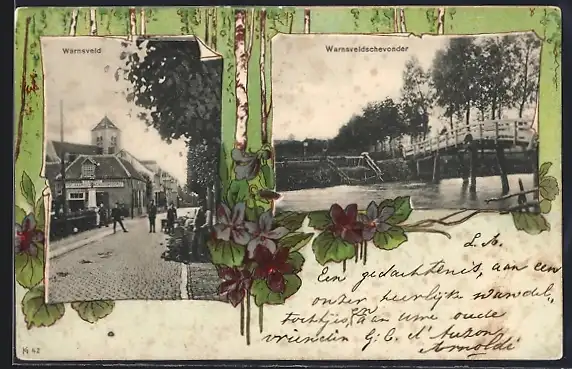 Warnsveld
Warnsveldschevonder
L. A.
Een gedachtenis, aan een
onzer heerlijke wandel,
tochtjes, en aan uwe oude
vrienden G. C. d'Auzon
Arnoldi
No 42